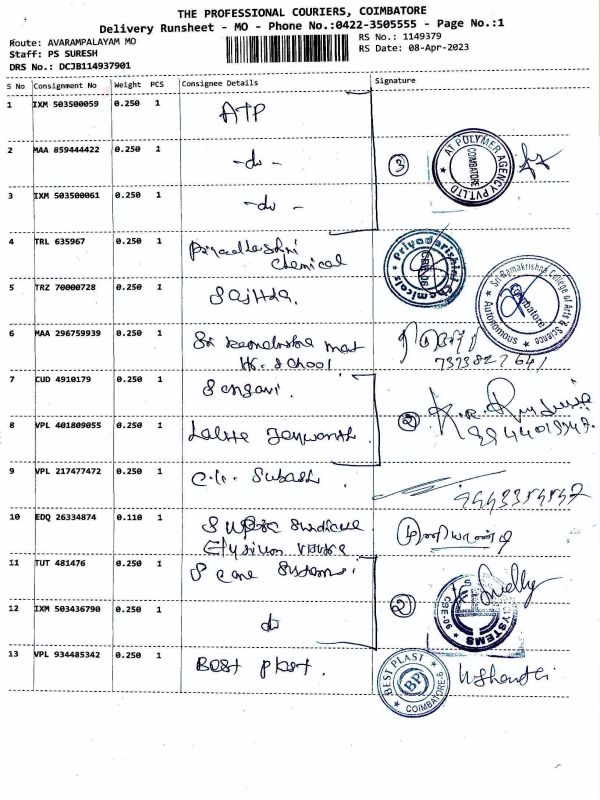 THE PROFESSIONAL COURIERS, COIMBATORE
Delivery Runsheet - MO - Phone No.:0422-3505555 - Page No.:1
Route: AVARAMPALAYAM MO
RS No.: 1149379
Staff: PS SURESH
RS Date: 08-Apr-2023
DRS No.: DCJB114937901
S No Consignment No Weight PCS Consignee Details Signature
1 IXM 503500059 0.250 1 ATP
2 MAA 859444422 0.250 1 -do- 3 AT POLYMER AGENCY PVT.LTD COIMBATORE
3 IXM 503500061 0.250 1 -do-
4 TRL 635967 0.250 1 Priyadharshni Chemical Priyadarishini Chemicals
5 TRZ 70000728 0.250 1 Sajitha. Sri Ramakrishna College of Arts & Science Autonomous Coimbatore
6 MAA 296759939 0.250 1 Sri Ramakrishna Mat
Hr. School
7 CUD 4910179 0.250 1 Sangavi.
8 VPL 401809055 0.250 1 Lalite Jaywanth. 2
9 VPL 217477472 0.250 1 Subash.
10 EDQ 26334874 0.110 1
11 TUT 481476 0.250 1 S Cane Systems
12 IXM 503436790 0.250 1 do 2 SYSTEMS
13 VPL 934485342 0.250 1 Best plast. BEST PLAST BP COIMBATORE-6 N Shanthi